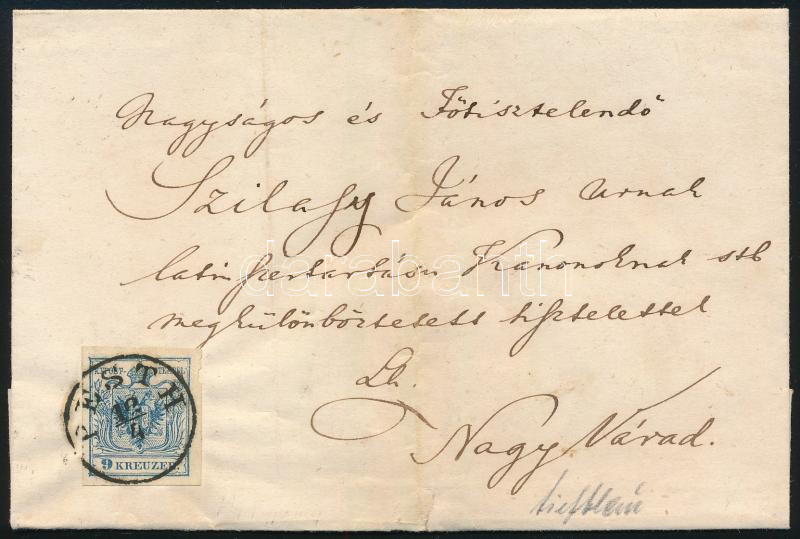 Nagyságos és Főtisztelendő
Szilagy János urnak
latin szertartásu Kanonoknak stb
megkülönböztetett tisztelettel
Nagy Várad.
PESTH
12/4
9 KREUZER
darabanth